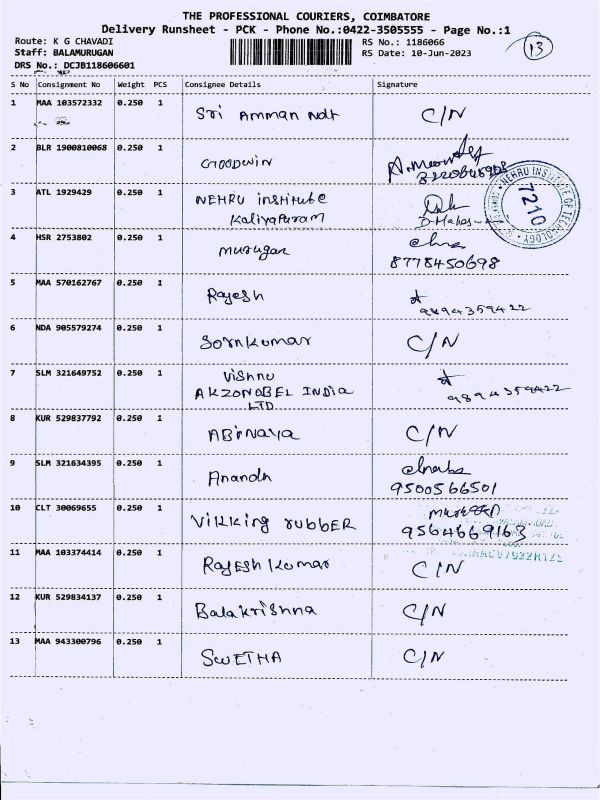 THE PROFESSIONAL COURIERS, COIMBATORE
Delivery Runsheet - PCK - Phone No.:0422-3505555 - Page No.:1
Route: K G CHAVADI
RS No.: 1186066
13
Staff: BALAMURUGAN
RS Date: 10-Jun-2023
DRS No.: DCJB118606601
S No Consignment No Weight PCS Consignee Details Signature
1 MAA 103572332 0.250 1 Sri Amman Ndt C/N
2 BLR 1900810068 0.250 1 GOODWIN
3 ATL 1929429 0.250 1 NEHRU institute
Kaliyapuram
NEHRU INSTITUTE OF TECHNOLOGY
7210
4 HSR 2753802 0.250 1 murugan
8778450698
5 MAA 570162767 0.250 1 Rajesh
9894359422
6 NDA 905579274 0.250 1 Sornkumar C/N
7 SLM 321649752 0.250 1 Vishnu
AKZONOBEL INDIA
LTD
9894359422
8 KUR 529837792 0.250 1 ABiNAYA C/N
9 SLM 321634395 0.250 1 Anandh
9500566501
10 CLT 30069655 0.250 1 Vikking rubber
9564669163
11 MAA 103374414 0.250 1 Rajesh Kumar C/N
12 KUR 529834137 0.250 1 Balakrishna C/N
13 MAA 943300796 0.250 1 SWETHA C/N